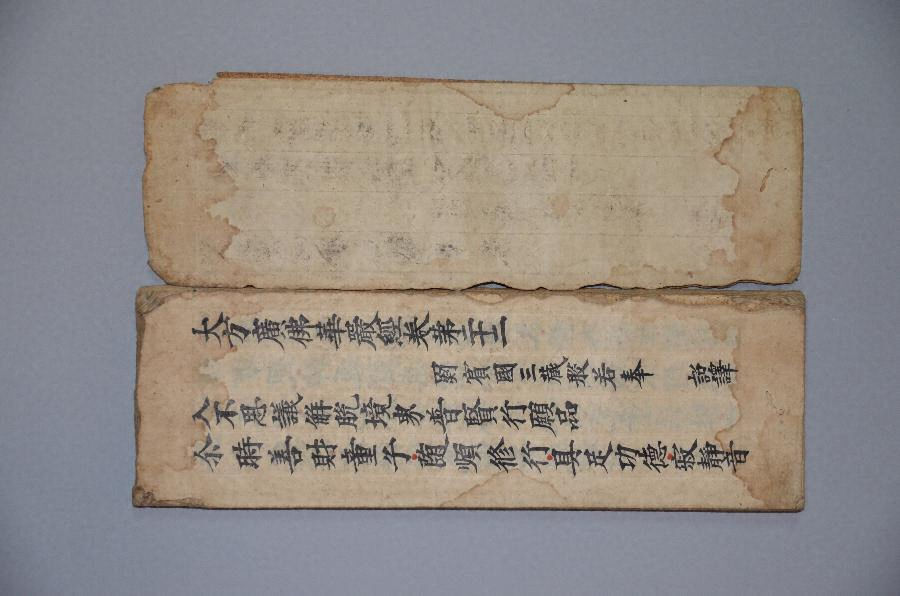 大方廣佛華嚴經卷第二十二
罽賓國三藏般若奉 詔譯
入不思議解脫境界普賢行願品
尒時善財童子随順修行具足功德寂靜音